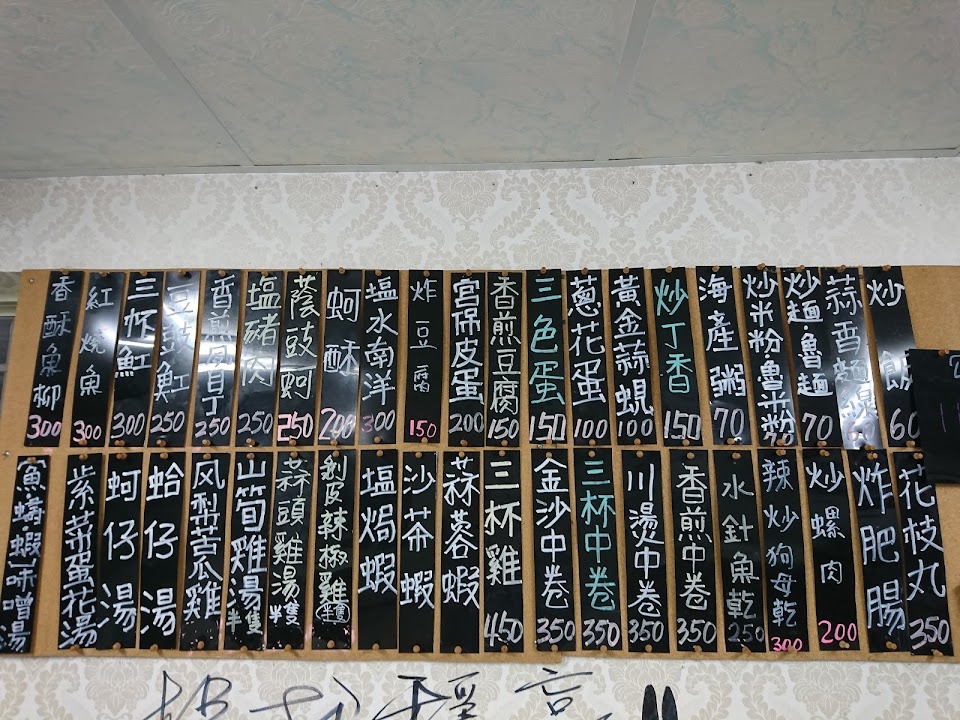 炒飯 60
蒜香麵線
炒麵.魯麵 70
炒米粉.魯米粉 70
海產粥 70
炒丁香 150
黃金蒜蜆 100
蔥花蛋 100
三色蛋 150
香煎豆腐 150
宮保皮蛋 200
炸豆腐 150
塩水南洋 300
蚵酥 200
蔭豉蚵 250
塩豬肉 250
香煎貝丁 250
豆豉魟 250
三杯魟 300
紅燒魚 300
香酥魚柳 300
花枝丸 350
炸肥腸
炒螺肉 200
辣炒狗母乾 300
水針魚乾 250
香煎中卷 350
川燙中卷 350
三杯中卷 350
金沙中卷 350
三杯雞 450
蒜蓉蝦
沙茶蝦
塩焗蝦
剝皮辣椒雞(半隻)
蒜頭雞湯半隻
山筍雞湯半隻
风梨苦瓜雞
蛤仔湯
蚵仔湯
紫菜蛋花湯
魚蟳蝦味噌湯